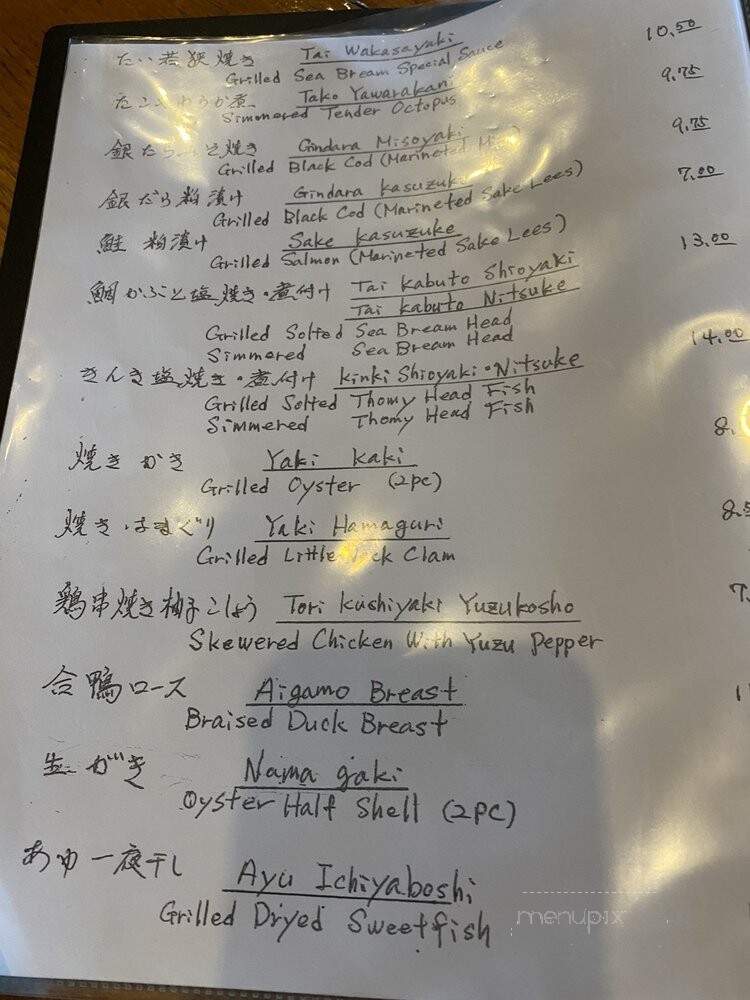 たい若狭焼き Tai Wakasayaki 10.50
Grilled Sea Bream Special Sauce
たこやわらか煮 Tako Yawarakani 9.75
Simmered Tender Octopus
銀だら 焼き Gindara Misoyaki 9.75
Grilled Black Cod (Marineted
銀だら粕漬け Gindara Kasuzuke 7.00
Grilled Black Cod (Marineted Sake Lees)
鮭 粕漬け Sake Kasuzuke
Grilled Salmon (Marineted Sake Lees) 13.00
鯛かぶと塩焼き・煮付け Tai Kabuto Shioyaki
Tai Kabuto Nitsuke
Grilled Solted Sea Bream Head
Simmered Sea Bream Head 14.00
きんき塩焼き・煮付け Kinki Shioyaki・Nitsuke
Grilled Solted Thomy Head Fish
Simmered Thomy Head Fish
焼きかき Yaki Kaki 8.
Grilled Oyster (2pc)
焼きはまぐり Yaki Hamaguri 8.5
Grilled Little Clam
鶏串焼き柚子こしょう Tori Kushiyaki Yuzukosho 7.
Skewered Chicken With Yuzu Pepper
合鴨ロース Aigamo Breast 1
Braised Duck Breast
生がき Nama gaki
Oyster Half Shell (2PC)
あゆ一夜干し Ayu Ichiyaboshi
Grilled Dryed Sweetfish
menupix